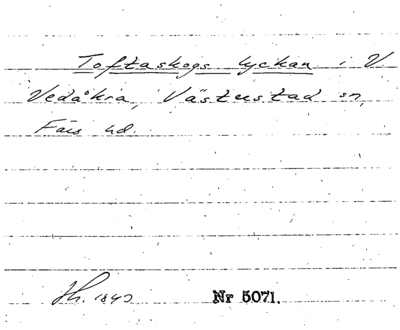 Toftaskogs lyckan i V.
Vedåkra, Västustad sn,
Färs hd.
Nr 5071.